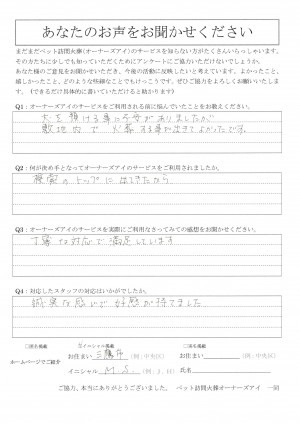 あなたのお声をお聞かせください
まだまだペット訪問火葬(オーナーズアイ)のサービスを知らない方がたくさんいらっしゃいます。
その方たちに少しでも知っていただくためにアンケートにご協力いただけないでしょうか。
あなた様のご意見をお聞かせいただき、今後の活動に反映したいと考えています。よかったこと、
嬉しかったこと、どのような些細なことでもけっこうです。ぜひご協力をよろしくお願いいたしま
す。(できるだけ具体的に書いていただけると助かります)
Q1:オーナーズアイのサービスをご利用される前に悩んでいたことをお教えください。
犬を預ける事に不安がありましたが
敷地内で火葬する事が出来てよかったです。
Q2:何が決め手となってオーナーズアイのサービスをご利用されましたか。
検索のトップにでてきたから
Q3:オーナーズアイのサービスを実際にご利用なさってみての感想をお聞かせください。
丁寧な対応で満足しています
Q4:対応したスタッフの対応はいかがでしたか。
誠実な感じで好感が持てました
ホームページでご紹介
イニシャル掲載
お住まい 三鷹市 (例:中央区)
イニシャル M.S. (例:J.H)
□実名掲載
お住まい (例:中央区)
氏名
ご協力、本当にありがとうございました。 ペット訪問火葬オーナーズアイ 一同